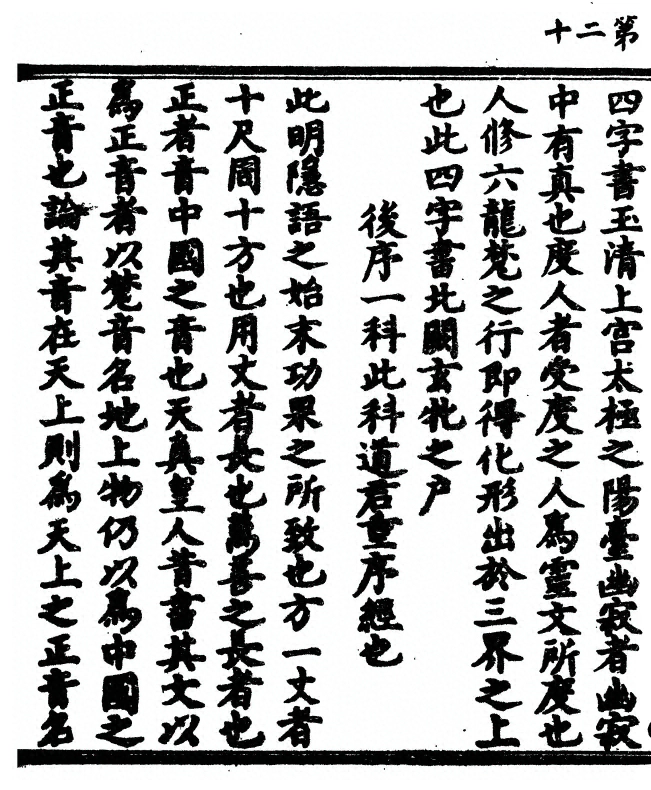 第二十
四字書玉清上宫太極之陽臺幽寂者幽寂
中有真也度人者受度之人為靈文所度也
人修六龍梵之行即得化形出於三界之上
也此四字書北闕玄牝之户
後序一科此科道君重序經也
此明隱語之始末功果之所致也方一丈者
十尺周十方也用丈者長也萬善之長者也
正者音中國之音也天真皇人昔書其文以
為正音者以梵音名地上物仍以為中國之
正音也論其音在天上則為天上之正音名